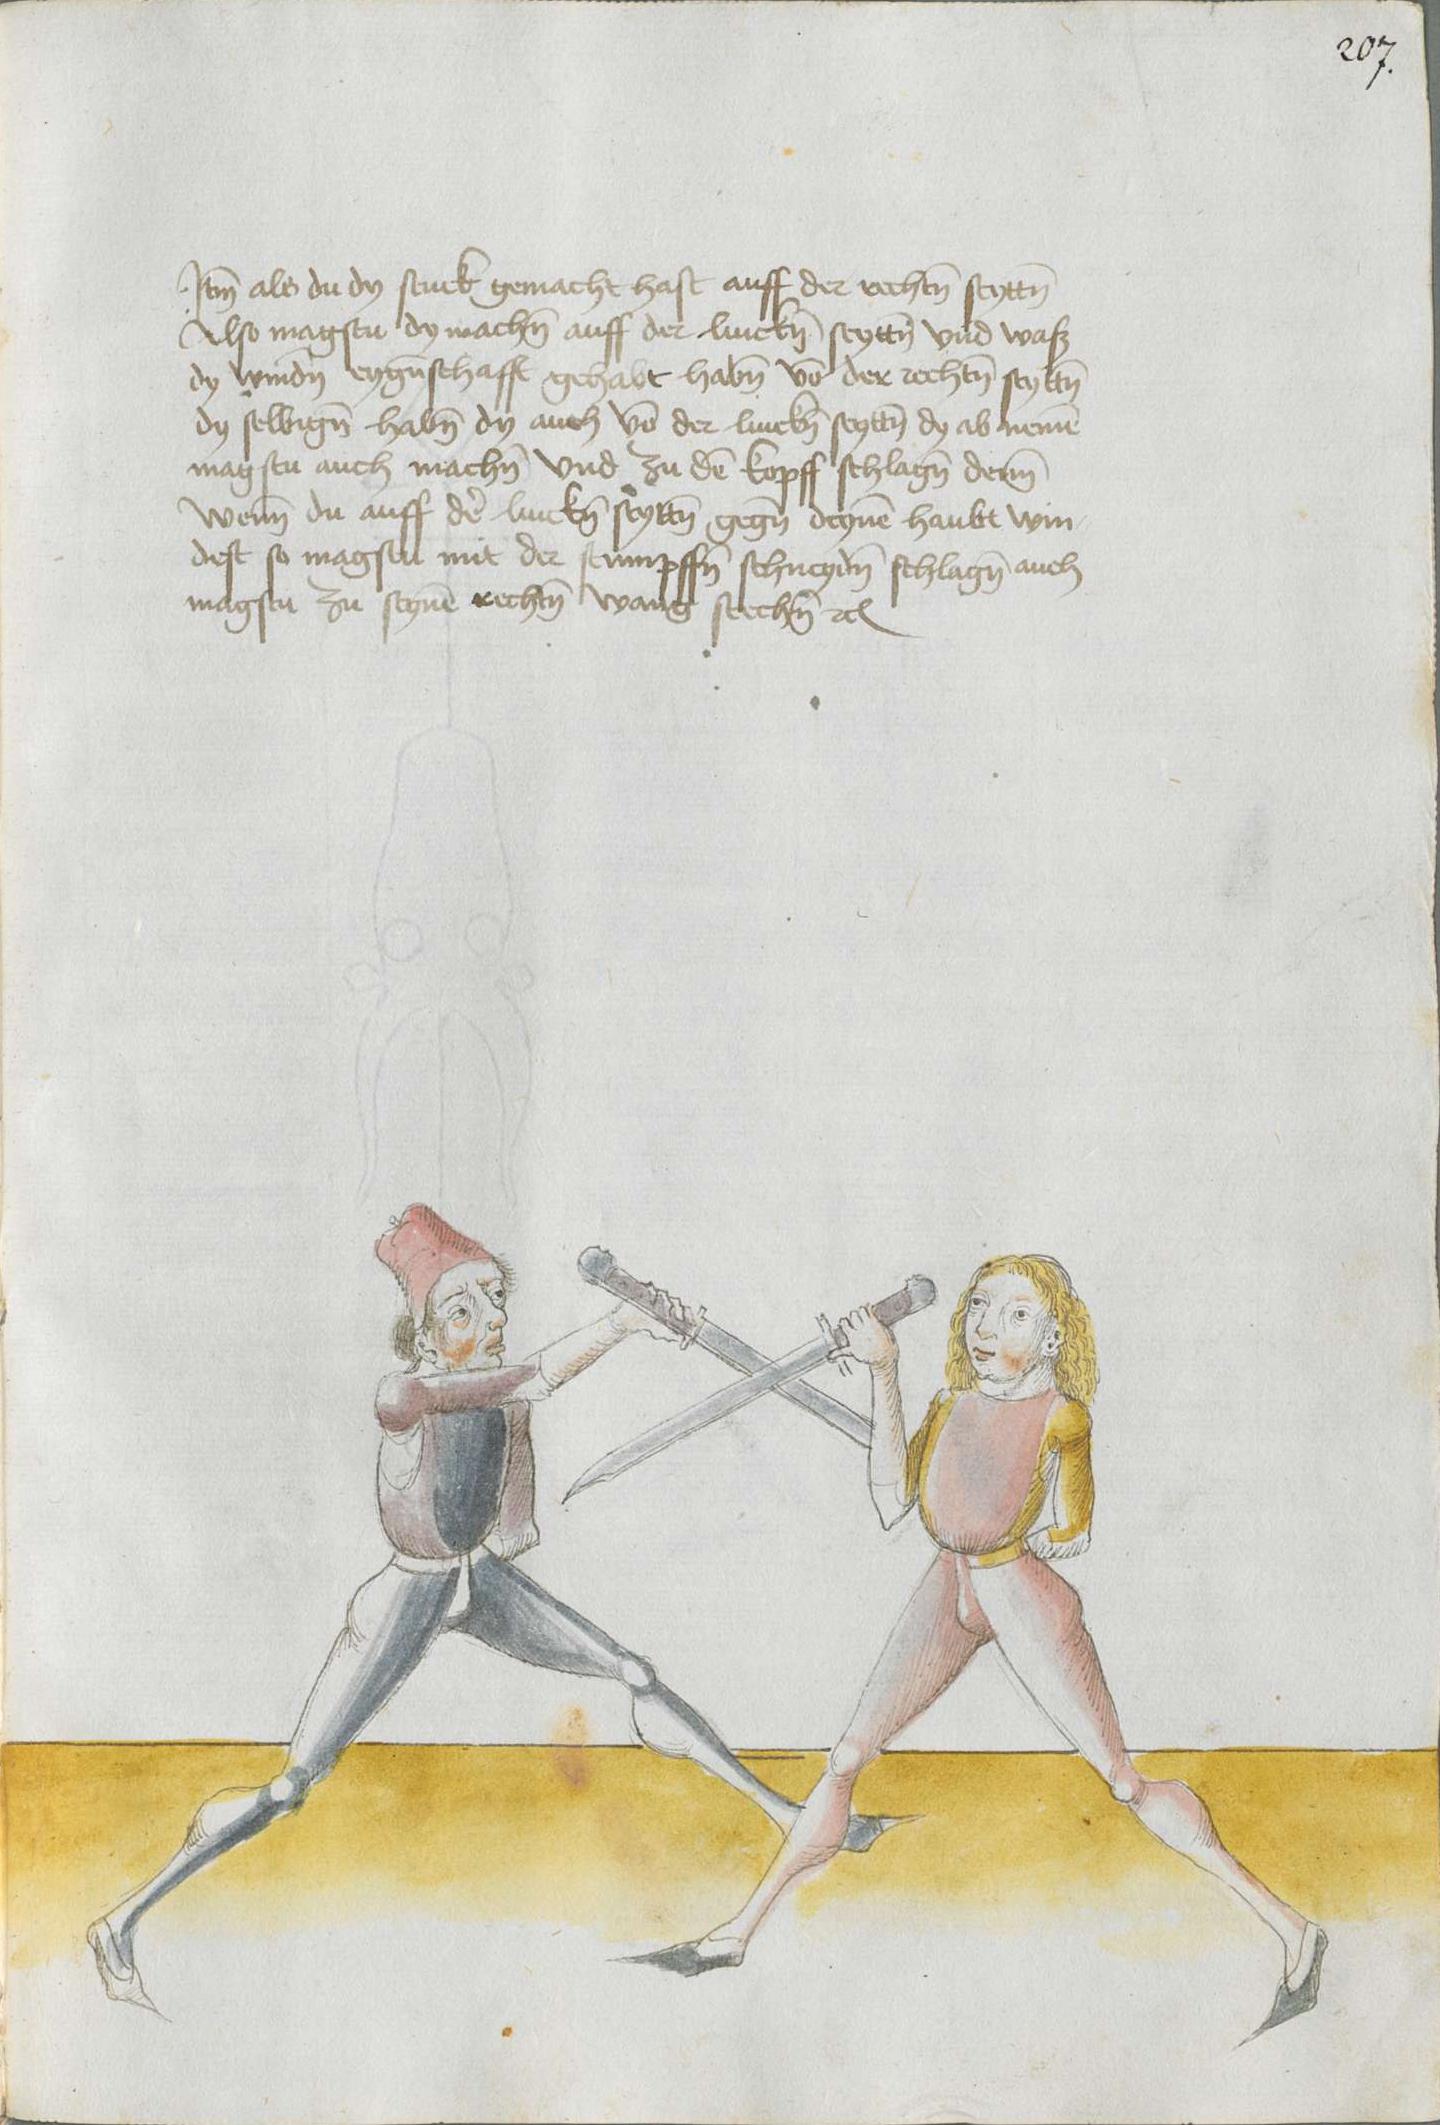 207.
Itm̄ als du dy stuck gemacht hast auff der rechtn̄ seyttn̄
Also magstu dy machn̄ auff der linckn̄ seyttn̄ vnd waß
dy windn̄ eygn̄schafft gehabt habn̄ vō der rechtn̄ seyttn̄
dy selbign̄ habn̄ dy auch vō der linckn̄ seyttn̄ dy ab nemē
magstu auch machn̄ vnd zu dē kopff schlagn̄ denn̄
wenn̄ du auff der linckn̄ seyttn̄ gegn̄ deynē haubt win
dest so magstu mit der stumpffn̄ schneydn̄ schlagn̄ auch
magstu zu seynē rechtn̄ wang stechn̄ ꝛc